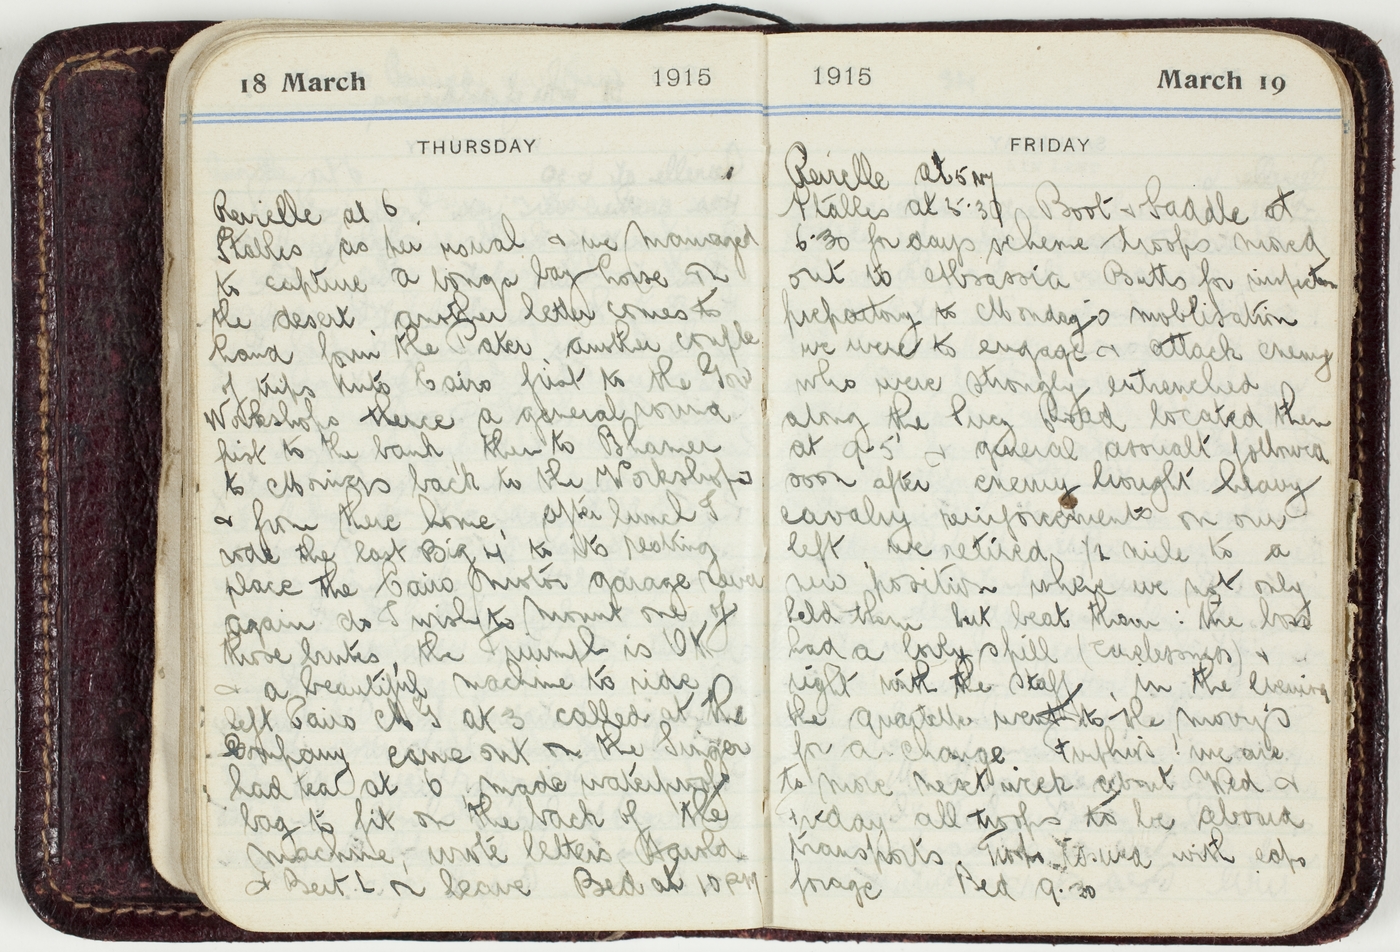 18 March 1915
THURSDAY
Revielle at 6
Stables as per usual & we managed
to capture a bay horse on
the desert, another letter comes to
hand from the Pater, another couple
of trips into Cairo first to the Gov
Workshops thence a general round
first to the bank, then to
to back to the Workshops
& from there home, after lunch I
rode the last Big 4 to its resting
place the Cairo Motor garage never
again do I wish to mount one of
those brutes, the Triumph is OK
& a beautiful machine to ride,
left Cairo at 3 called at the
Company came out on the Singer
had tea at 6 made waterproof
bag to fit on the back of the
machine, wrote letters Harold
& Bert. L on leave Bed at 10 PM
1915 March 19
FRIDAY
Revielle at 5
Stables at 5.30 Boot & Saddle at
6.30 for days scheme troops moved
out to Abbassia Butts for inspection
prepartory to Monday's moblisation
we were to engage & attack enemy
who were strongly entrenched
along the Suez Road located them
at 9.5 & general assualt followed
soon after enemy brought heavy
cavalry reinforcements on our
left we retired ½ mile to a
new position where we not only
held them but beat them: the boss
had a lovely spill (carlessness) &
right with the Staff, in the evening
the quartette went to the movy's
for a change ! we are
to move next week about Wed &
Friday all troops to be aboard
transports. with
forage Bed 9.30